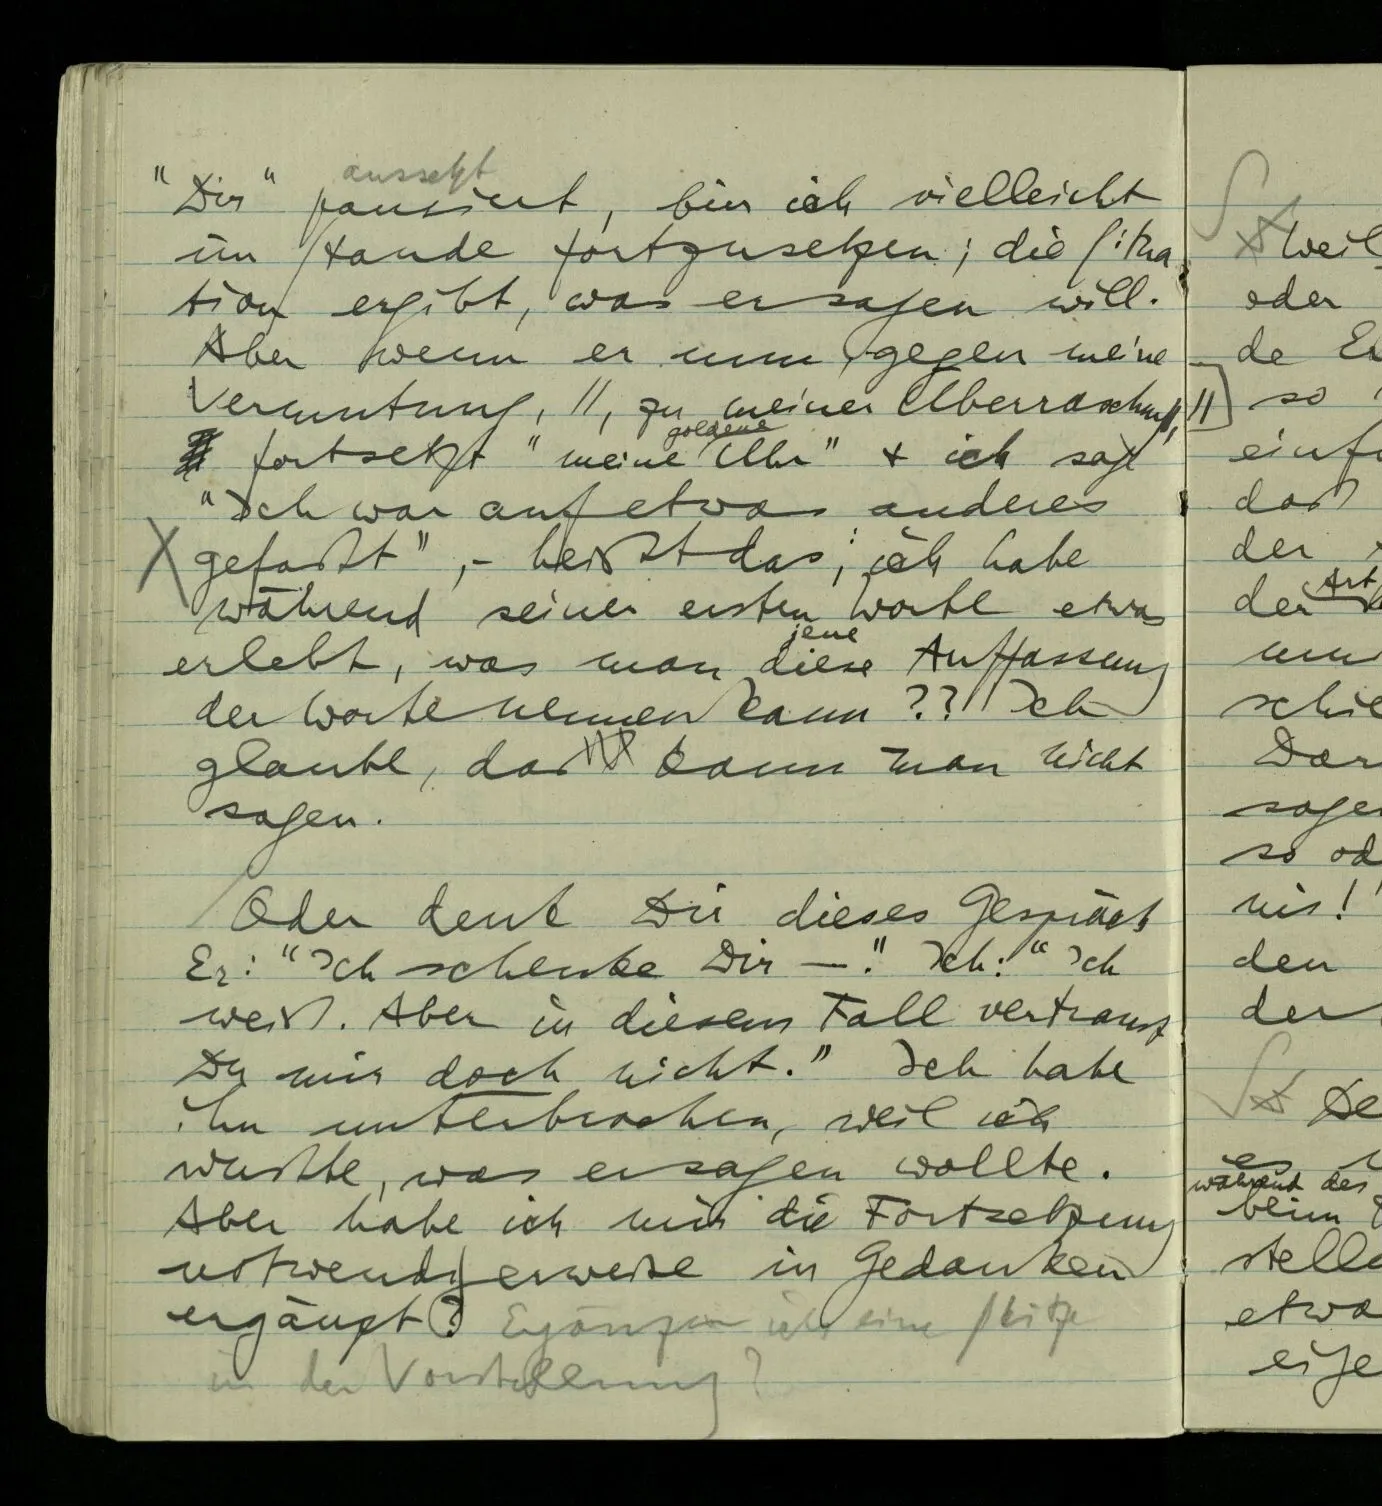 aussetzt
"Dir" pausiert, bin ich vielleicht
im Stande fortzusetzen; die Situa
tion ergibt, was er sagen will.
Aber wenn er nun, gegen meine
Vermutung, //, zu meiner Überraschung, //
goldene
fortsetzt "meine Uhr" + ich sage
"Ich war auf etwas anderes
X gefaßt", – heißt das: ich habe
während seiner ersten Worte etwas
jene
erlebt, was man diese Auffassung
der Worte nennen kann?? Ich
glaube, daß kann man nicht
sagen.
Oder denk Dir dieses Gespräch
Er: "Ich schenke Dir —." Ich: "Ich
weiß. Aber in diesem Fall vertraust
Du mir doch nicht." Ich habe
ihn unterbrochen, weil ich
wußte, was er sagen wollte.
Aber habe ich mir die Fortsetzung
notwendigerweise in Gedanken
ergänzt? Ergänze ich eine Skizze
in der Vorstellung?
weil
oder
de
so
einf
daß
der
Art
der
schie
Dar
sage
so od
nis!
den
der
es
während des
beim
stelle
etwa
eige